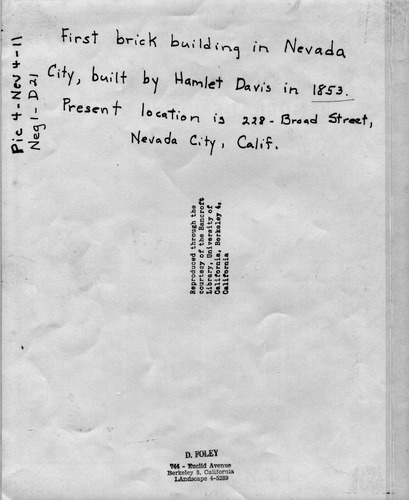 First brick building in Nevada
City, built by Hamlet Davis in 1853.
Present location is 228 - Broad Street,
Nevada City, Calif.
Pic 4-Nev 4-11
Neg 1-D21
Reproduced through the
courtesy of the Bancroft
Library, University of
California, Berkeley 4,
California
D. FOLEY
744 - Euclid Avenue
Berkeley 8, California
LAndscape 4-5289